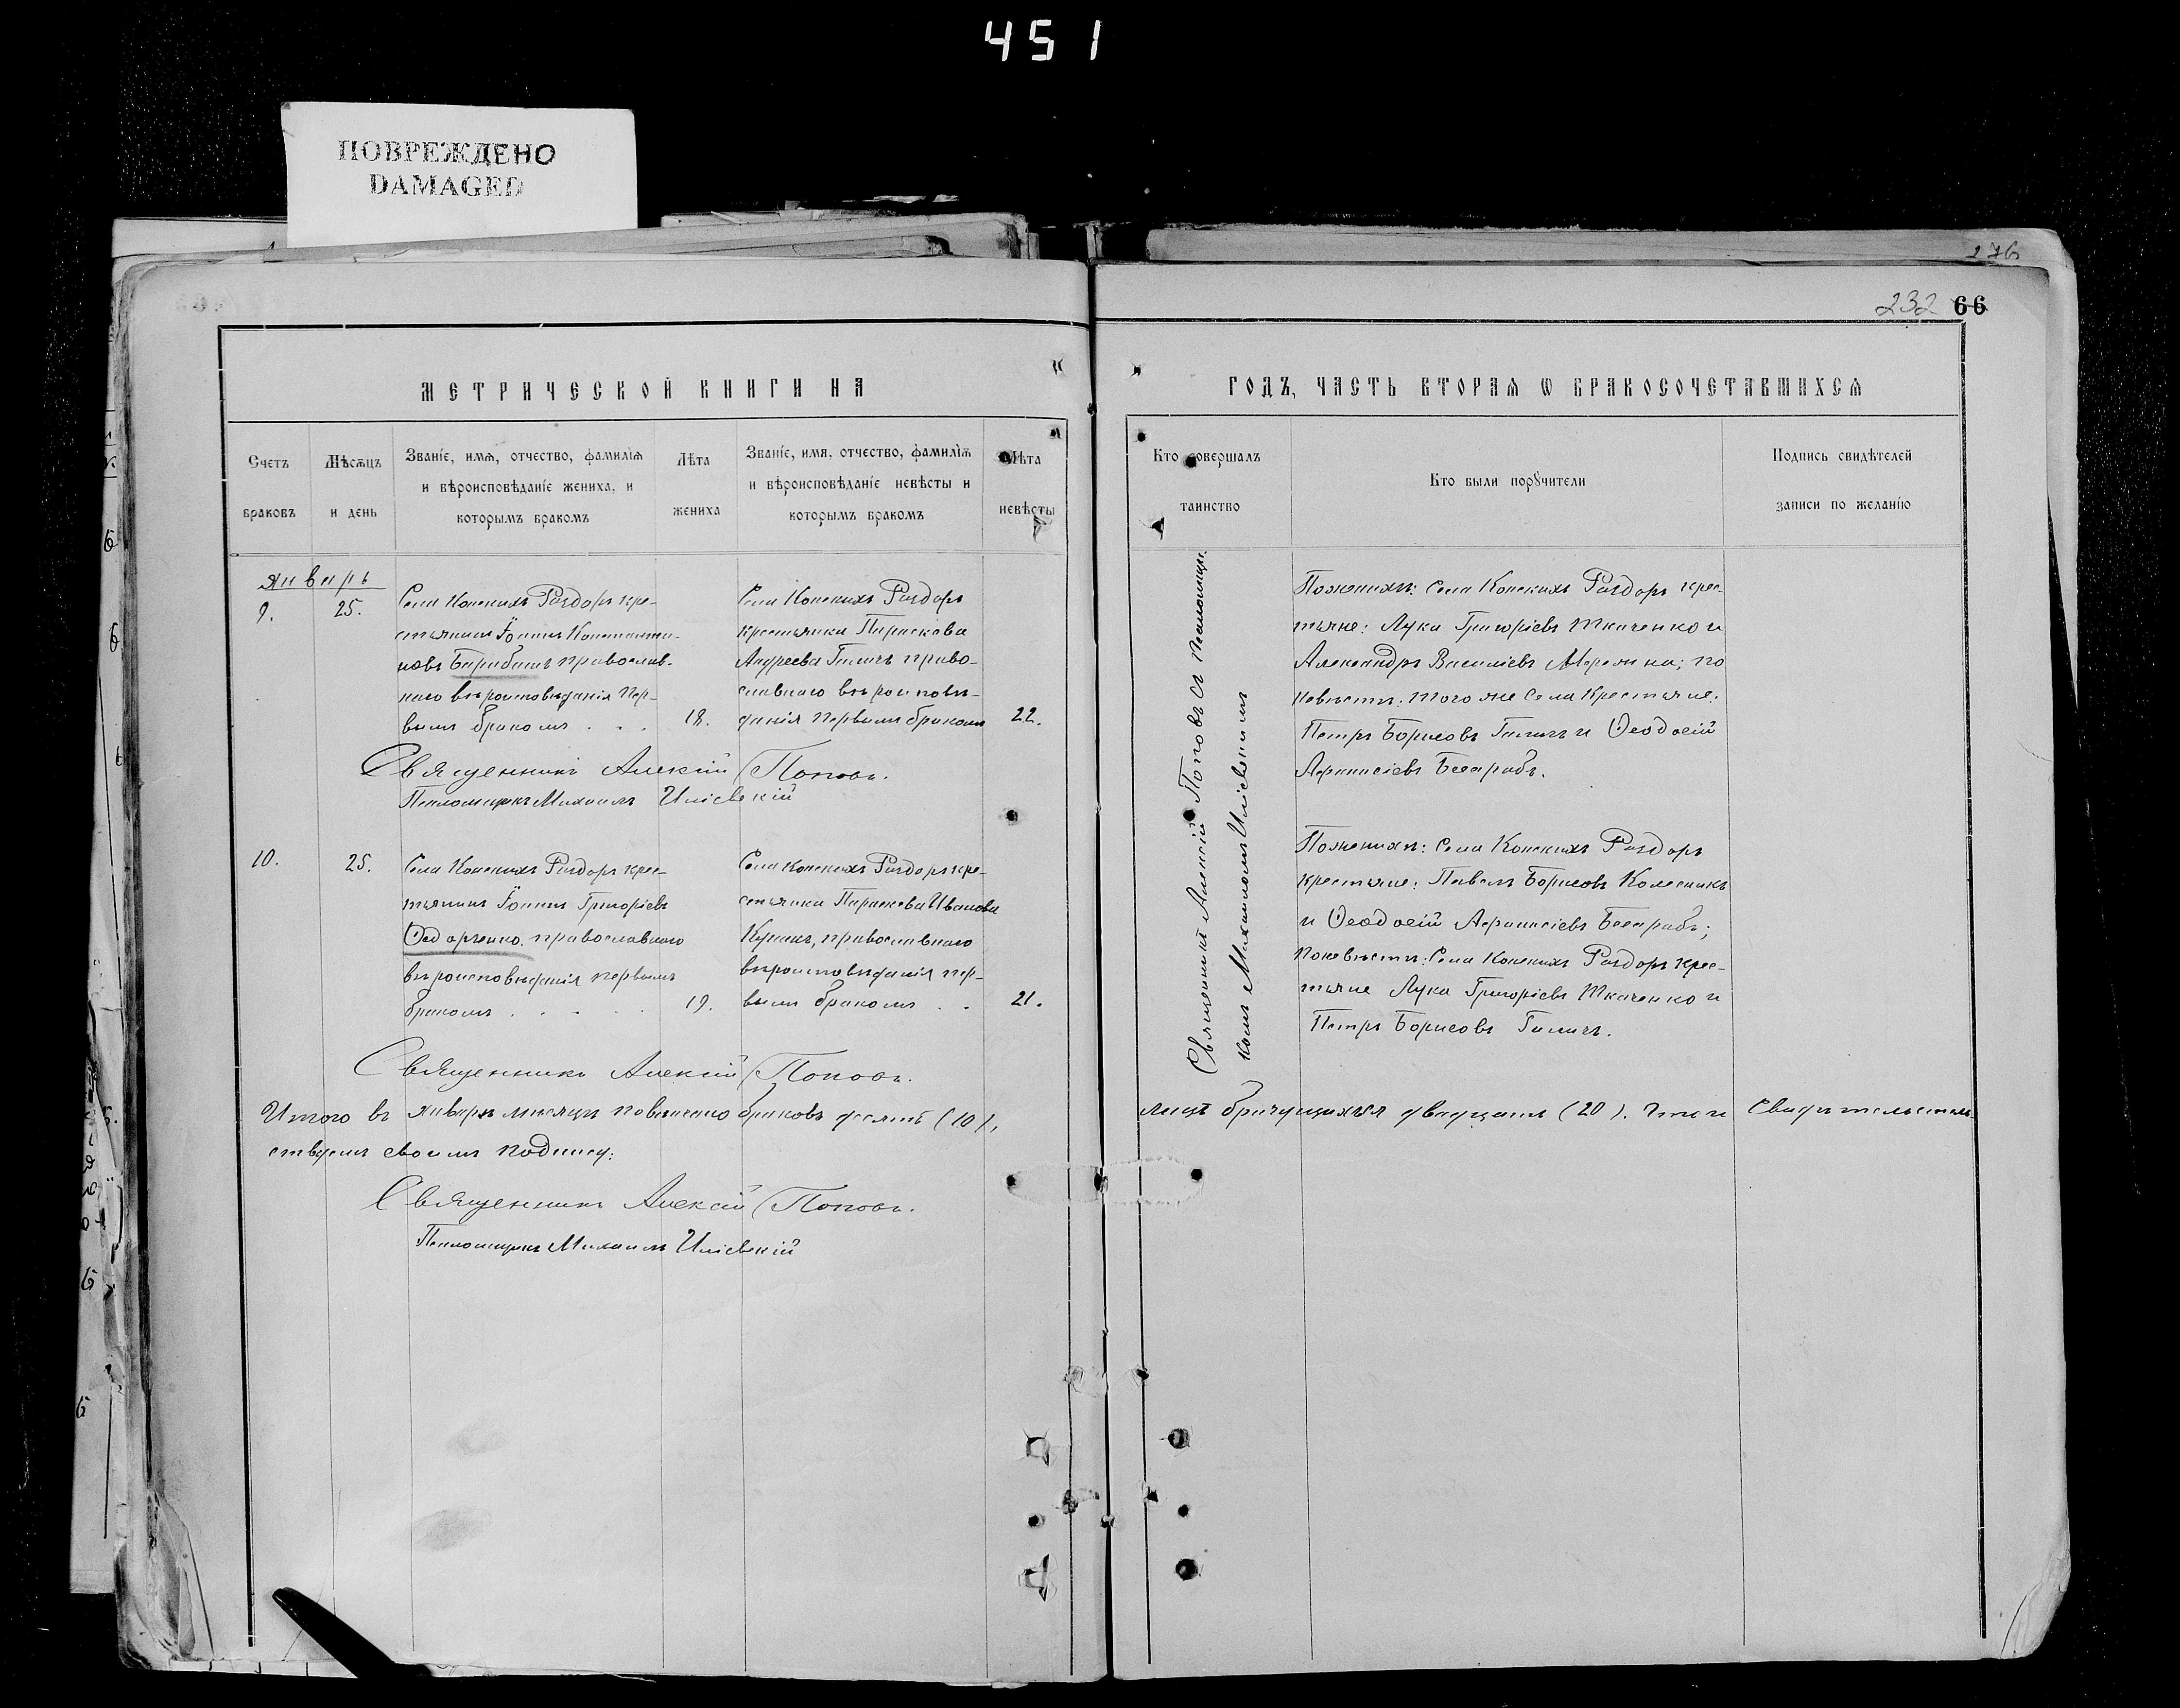 451
ПОВРЕЖДЕНО
DAMAGED
276
232 66
МЕТРИЧЕСКОЙ КНИГИ НА
ГОДЪ, ЧАСТЬ ВТОРАѦ Ѡ БРАКОСОЧЕТАВШИХСѦ
Счетъ
браковъ
Мѣсѧцъ
и день
Званіе, имѧ, отчество, фамиліѧ
и вѣроисповѣданіе жениха, и
которымъ бракомъ
Лѣта
жениха
Званіе, имя, отчество, фамиліѧ
и вѣроисповѣданіе невѣсты и
которымъ бракомъ
Лѣта
невѣсты
Кто совершалъ
таинство
Кто были порꙋчители
Подпись свидѣтелей
записи по желанію
Январь
9. 25.
Села Конскихъ Раздоръ кре-
стьянинъ Іоаннъ Константи-
новъ Барабашъ православ-
наго вѣроисповѣданія пер-
вымъ бракомъ . . . 18.
Села Конскихъ Раздоръ
крестьянка Параскева
Андреева Галичъ право-
славнаго вѣроисповѣ-
данія первымъ бракомъ 22.
Священникъ Алексій Поповъ.
Псаломщикъ Михаилъ Иліевскій
Священникъ Алексій Поповъ съ Псаломщи-
комъ Михаиломъ Иліевскимъ
По женихѣ: Села Конскихъ Раздоръ крес-
тьяне: Лука Григоріевъ Ткаченко и
Александръ Василіевъ Мережка; по
невѣстѣ: того же Села Крестьяне:
Петръ Борисовъ Галичъ и Ѳеодосій
Аѳанасіевъ Бесарабъ.
10. 25.
Села Конскихъ Раздоръ крес-
тьянинъ Іоаннъ Григоріевъ
Ѳедорченко. православнаго
вѣроисповѣданія первымъ
бракомъ . . . . . 19.
Села Конскихъ Раздоръ кре-
стьянка Параскева Иванова
православнаго
вѣроисповѣданія пер-
вымъ бракомъ . . 21.
По женихѣ: Села Конскихъ Раздоръ
крестьяне: Павелъ Борисовъ Колесникъ
и Ѳеодосій Аѳанасіевъ Бесарабъ;
по невѣстѣ: Села Конскихъ Раздоръ крес-
тьяне Лука Григоріевъ Ткаченко и
Петръ Борисовъ Галичъ.
Священникъ Алексій Поповъ.
Итого въ январѣ мѣсяцѣ повѣнчано браковъ десять (10), лицъ брачущихся двадцать (20). Что и свидѣтельст-
ствуемъ своимъ подпису:
Священникъ Алексій Поповъ.
Псаломщикъ Михаилъ Иліевскій